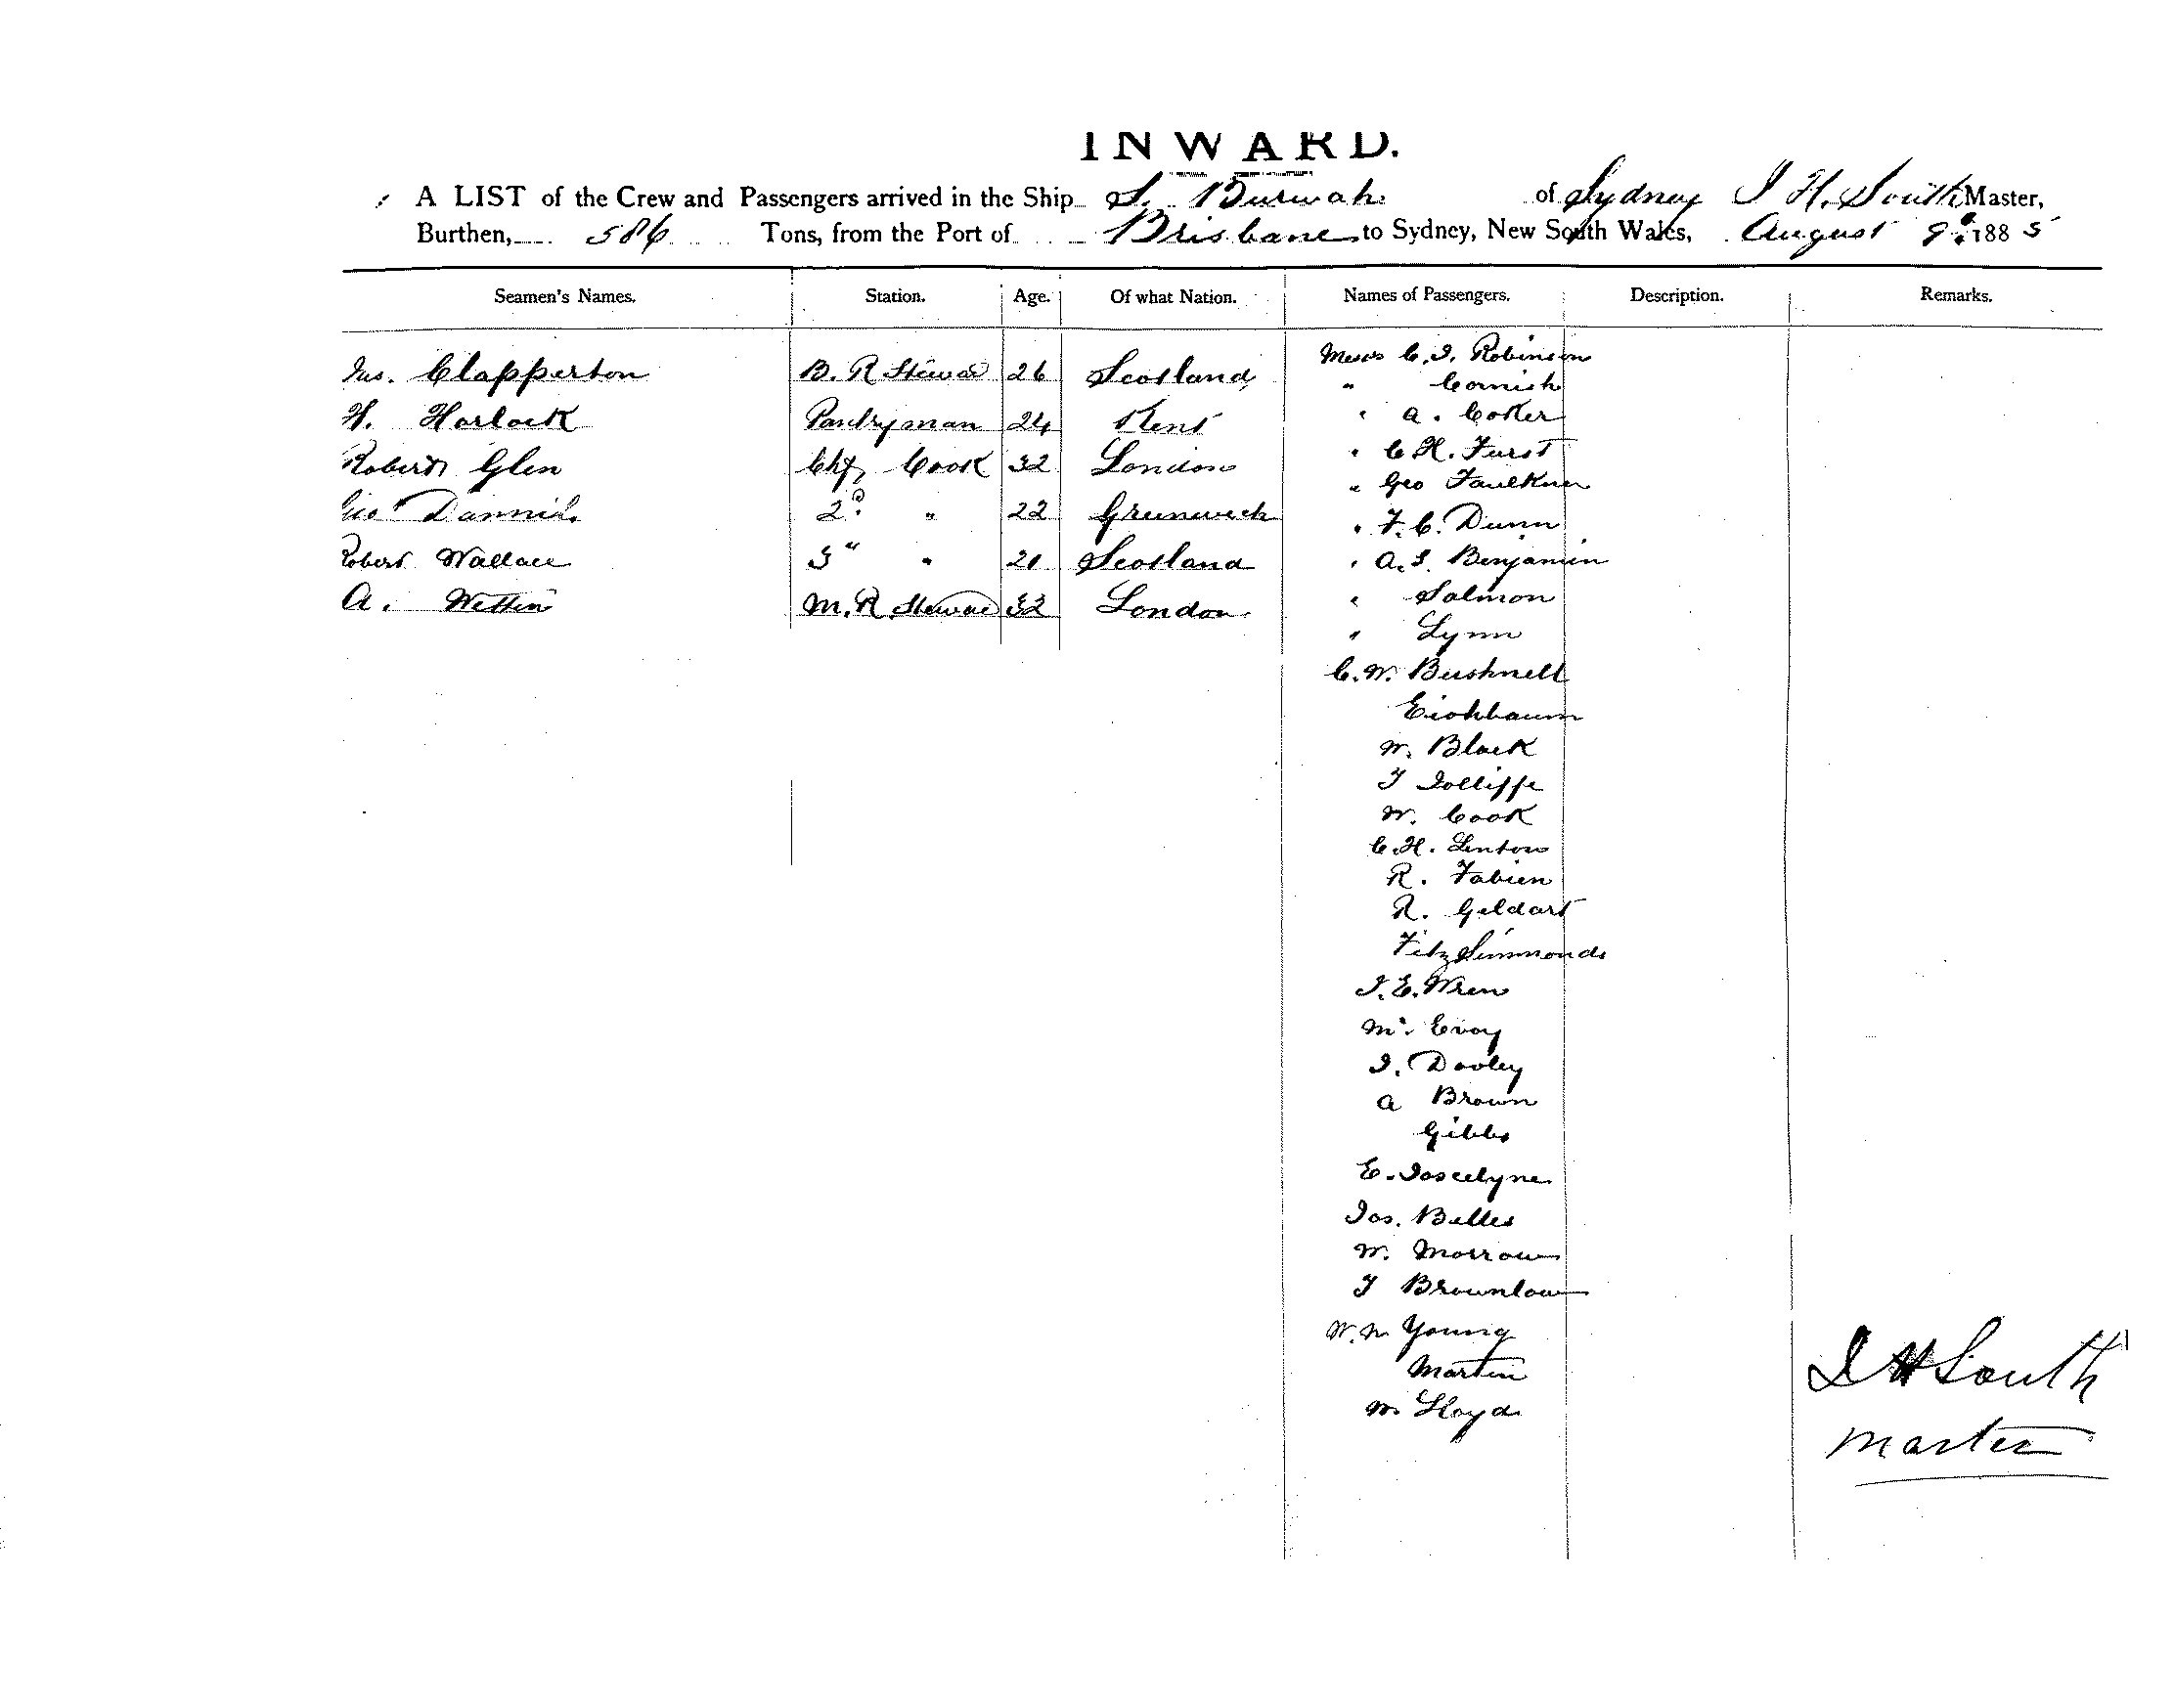 INWARD.
A LIST of the Crew and Passengers arrived in the Ship S. Burwah of Sydney J H. South Master,
Burthen, 586 Tons, from the Port of Brisbane to Sydney, New South Wales, August 9th 1885
Seamen's Names. Station. Age. Of what Nation. Names of Passengers. Description. Remarks.
Jas. Clapperton B. R Steward 26 Scotland
H. Horlock Pantryman 24 Kent
Robert Glen Chf Cook 32 London
Geo Dannil 2d " 22 Greenwich
Robert Wallace 3" " 21 Scotland
A. M. R. Steward 32 London
Messrs C. J. Robinson
" Cornish
" A. Coker
" C H. Furst
" Geo Faulkner
" F. C. Dunn
" A. S. Benjamin
" Salmon
" Lynn
C. W. Bushnell
Eichbaum
W. Black
T Jolliffe
W. Cook
C. H. Linton
R. Fabien
R. Geldart
FitzSimmonds
J. E. Wren
Mc Evoy
J. Dooley
A Brown
Gibbs
E. Joscelyne
Jos. Belles
W. Morrow
T Brownlow
W. M Young
Martin
M. Lloyd
J H South
Master